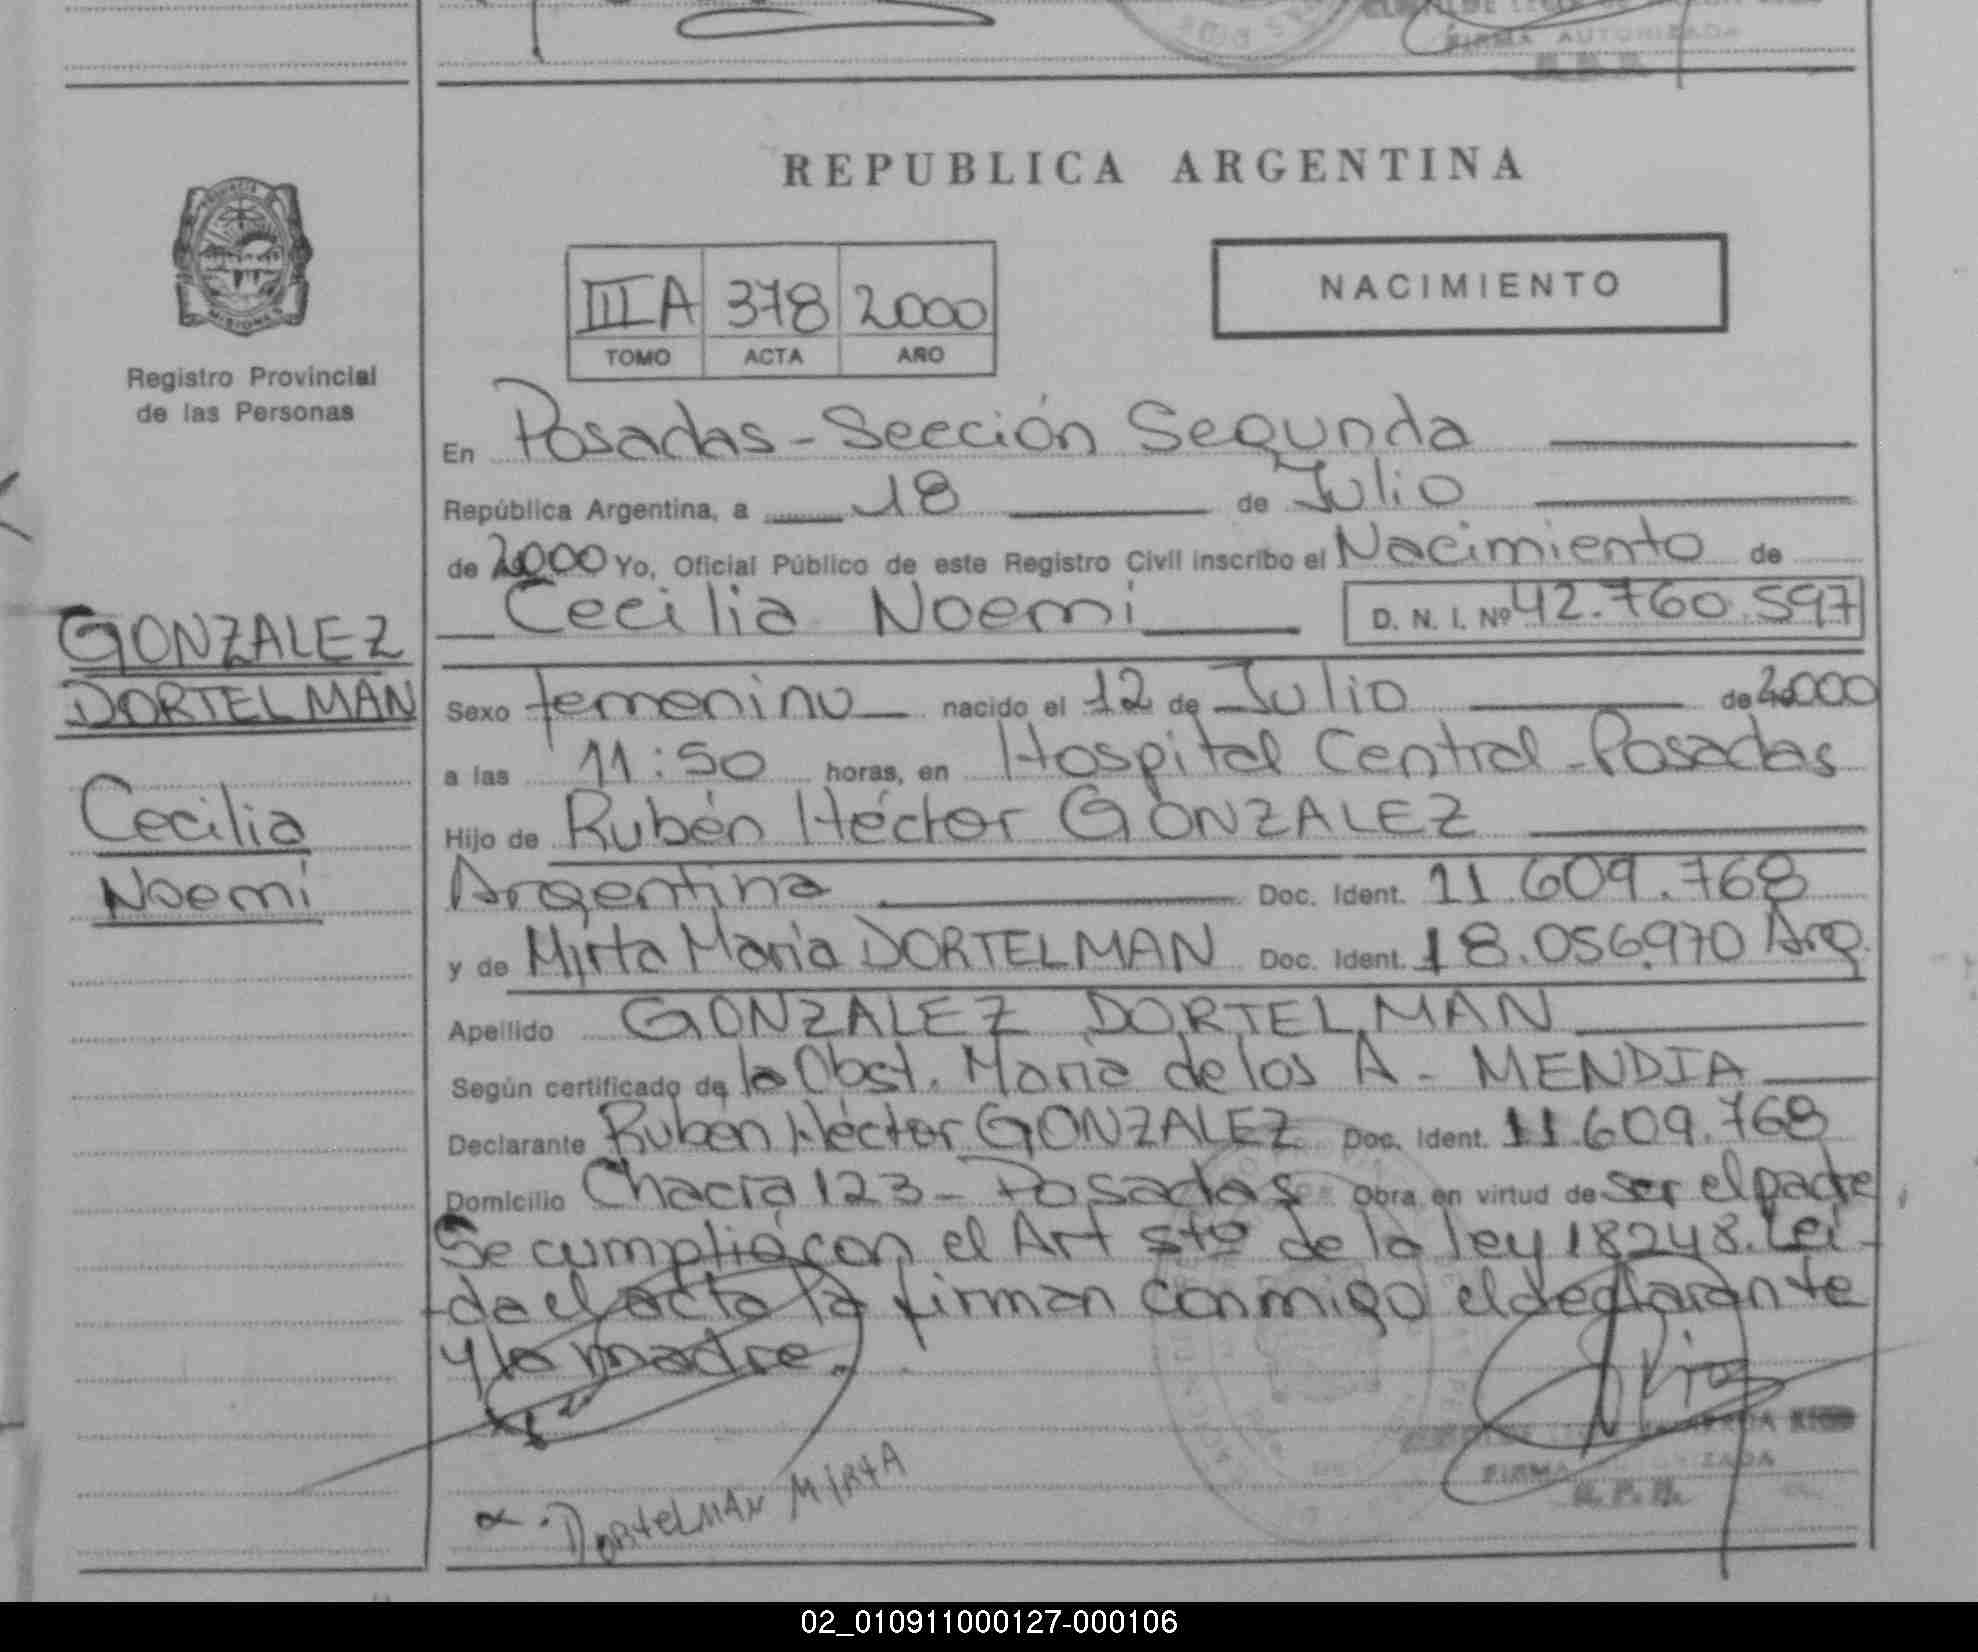 FIRMA AUTORIZADA
REPUBLICA ARGENTINA
MISIONES
Registro Provincial
de las Personas
IIIA 378 2000
TOMO ACTA AÑO
NACIMIENTO
En Posadas - Sección Segunda
República Argentina, a 18 de Julio
de 2000 Yo, Oficial Público de este Registro Civil inscribo el Nacimiento de
Cecilia Noemi D. N. I. Nº 42.760.597
GONZALEZ
DORTELMAN
Cecilia
Noemi
Sexo femenino nacido el 12 de Julio de 2000
a las 11:50 horas, en Hospital Central - Posadas
Hijo de Rubén Héctor GONZALEZ
Argentina Doc. Ident. 11.609.768
y de Mirta Maria DORTELMAN Doc. Ident. 18.056.970 Arg.
Apellido GONZALEZ DORTELMAN
Según certificado de la Obst. Maria de los A. - MENDIA
Declarante Rubén Héctor GONZALEZ Doc. Ident. 11.609.768
Domicilio Chacra 123 - Posadas Obra en virtud de ser el padre
Se cumplió con el Art 5to de la ley 18248. Lei-
da el acta la firman conmigo el declarante
y la madre.
FIRMA AUTORIZADA
R.P.P.
DORTELMAN MIRTA
02_010911000127-000106